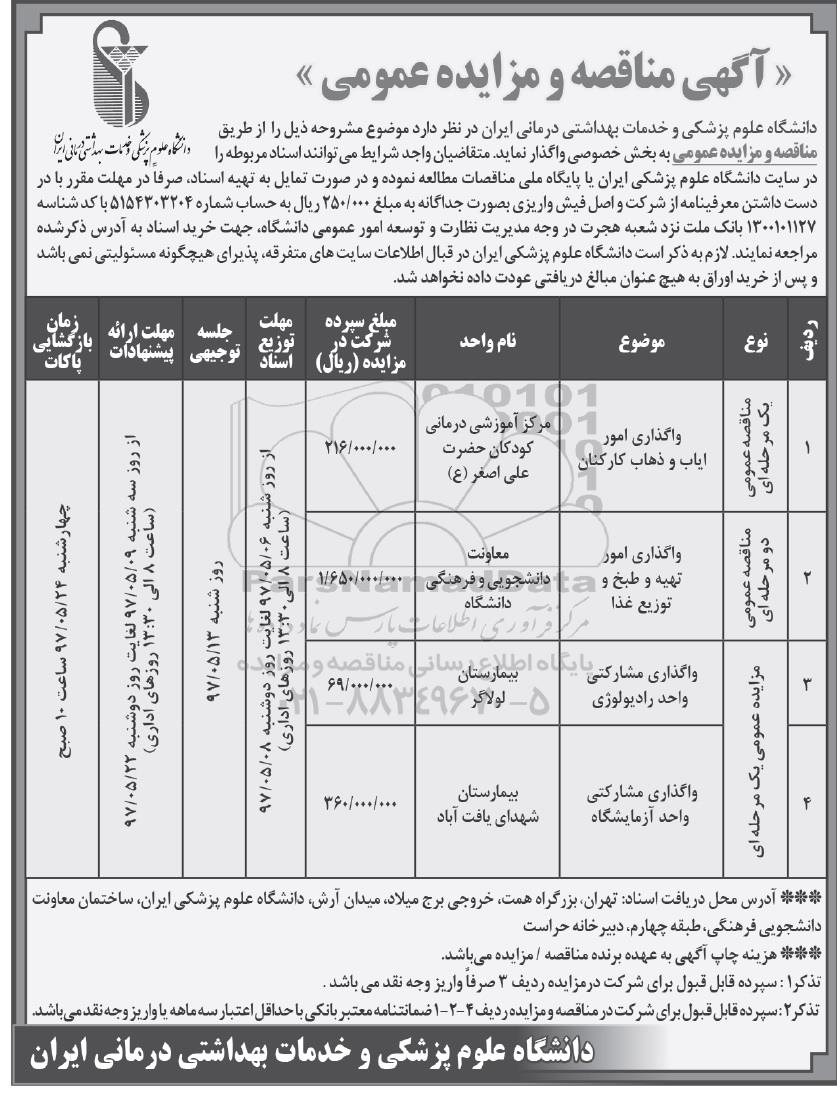 « آگهی مناقصه و مزایده عمومی »
دانشگاه علوم پزشکی و خدمات بهداشتی درمانی ایران
دانشگاه علوم پزشکی و خدمات بهداشتی درمانی ایران در نظر دارد موضوع مشروحه ذیل را از طریق
مناقصه و مزایده عمومی به بخش خصوصی واگذار نماید. متقاضیان واجد شرایط می توانند اسناد مربوطه را
در سایت دانشگاه علوم پزشکی ایران یا پایگاه ملی مناقصات مطالعه نموده و در صورت تمایل به تهیه اسناد، صرفاً در مهلت مقرر با در
دست داشتن معرفینامه از شرکت و اصل فیش واریزی بصورت جداگانه به مبلغ ۲۵۰/۰۰۰ ریال به حساب شماره ۵۱۵۴۳۰۳۲۰۴ با کد شناسه
۱۳۰۰۱۰۱۱۲۷ بانک ملت نزد شعبه هجرت در وجه مدیریت نظارت و توسعه امور عمومی دانشگاه، جهت خرید اسناد به آدرس ذکرشده
مراجعه نمایند. لازم به ذکر است دانشگاه علوم پزشکی ایران در قبال اطلاعات سایت های متفرقه، پذیرای هیچگونه مسئولیتی نمی باشد
و پس از خرید اوراق به هیچ عنوان مبالغ دریافتی عودت داده نخواهد شد.
ردیف
نوع
موضوع
نام واحد
مبلغ سپرده
شرکت در
مزایده (ریال)
مهلت
توزیع
اسناد
جلسه
توجیهی
مهلت ارائه
پیشنهادات
زمان
بازگشایی
پاکات
۱
مناقصه عمومی
یک مرحله ای
واگذاری امور
ایاب و ذهاب کارکنان
مرکز آموزشی درمانی
کودکان حضرت
علی اصغر (ع)
۲۱۶/۰۰۰/۰۰۰
از روز شنبه ۹۷/۰۵/۰۶ لغایت روز دوشنبه ۹۷/۰۵/۰۸
(ساعت ۸ الی ۱۳:۳۰ روزهای اداری)
روز شنبه ۹۷/۰۵/۱۳
از روز سه شنبه ۹۷/۰۵/۰۹ لغایت روز دوشنبه ۹۷/۰۵/۲۲
(ساعت ۸ الی ۱۳:۳۰ روزهای اداری)
چهارشنبه ۹۷/۰۵/۲۴ ساعت ۱۰ صبح
۲
مناقصه عمومی
دو مرحله ای
واگذاری امور
تهیه و طبخ و
توزیع غذا
معاونت
دانشجویی و فرهنگی
دانشگاه
۱/۶۵۰/۰۰۰/۰۰۰
۳
مزایده عمومی یک مرحله ای
واگذاری مشارکتی
واحد رادیولوژی
بیمارستان
لولاگر
۶۹/۰۰۰/۰۰۰
۴
واگذاری مشارکتی
واحد آزمایشگاه
بیمارستان
شهدای یافت آباد
۳۶۰/۰۰۰/۰۰۰
ParsNamadData
مرکز فرآوری اطلاعات پارس نماد داده ها
پایگاه اطلاع رسانی مناقصه و مزایده
❊❊❊ آدرس محل دریافت اسناد: تهران، بزرگراه همت، خروجی برج میلاد، میدان آرش، دانشگاه علوم پزشکی ایران، ساختمان معاونت
دانشجویی فرهنگی، طبقه چهارم، دبیرخانه حراست
❊❊❊ هزینه چاپ آگهی به عهده برنده مناقصه / مزایده می‌باشد.
تذکر۱ : سپرده قابل قبول برای شرکت درمزایده ردیف ۳ صرفاً واریز وجه نقد می باشد .
تذکر۲: سپرده قابل قبول برای شرکت در مناقصه و مزایده ردیف ۴-۲-۱ ضمانتنامه معتبر بانکی با حداقل اعتبار سه ماهه یا واریز وجه نقد می‌باشد.
دانشگاه علوم پزشکی و خدمات بهداشتی درمانی ایران